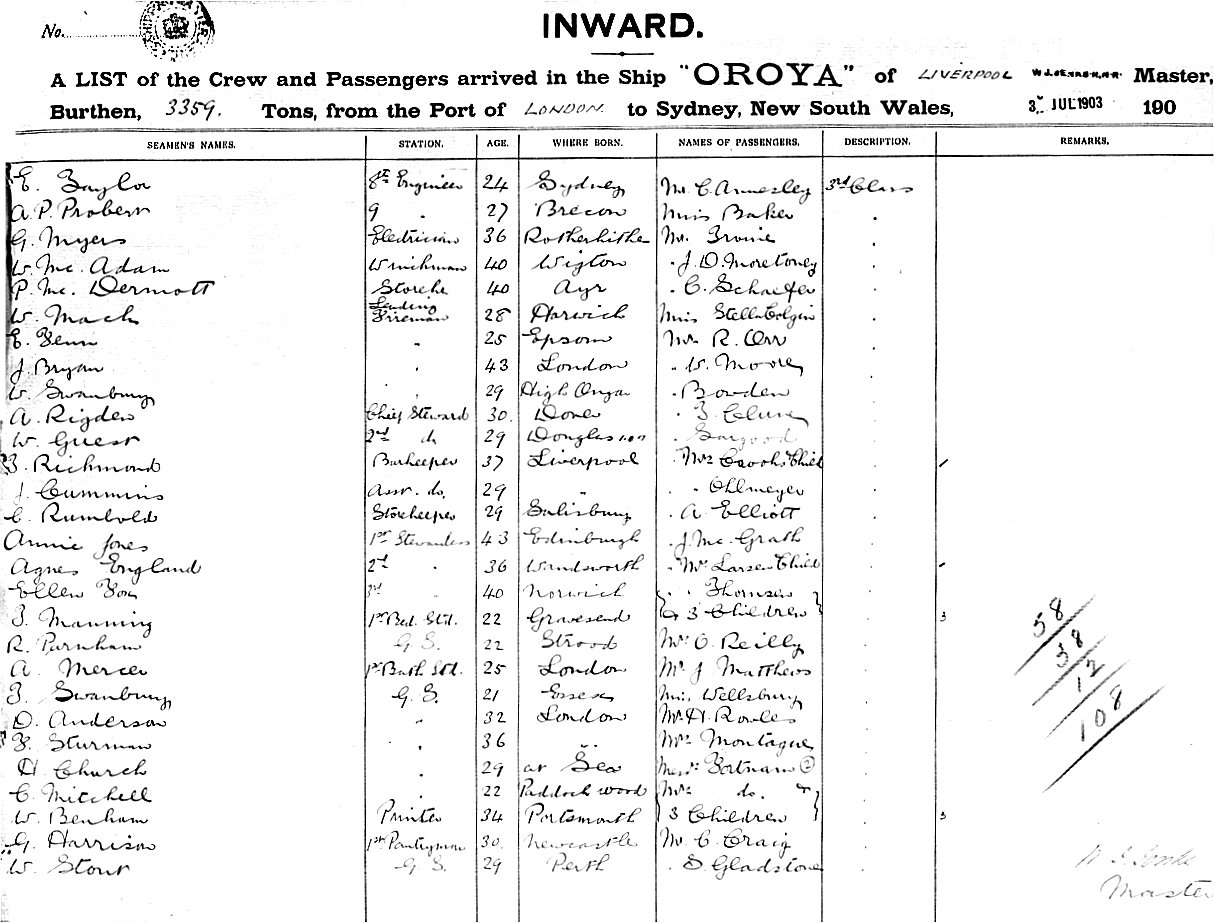 No.
INWARD.
A LIST of the Crew and Passengers arrived in the Ship "OROYA" of LIVERPOOL Master,
Burthen, 3359. Tons, from the Port of LONDON to Sydney, New South Wales, 3 JUL 1903 190
SEAMEN'S NAMES. STATION. AGE. WHERE BORN. NAMES OF PASSENGERS. DESCRIPTION. REMARKS.
E. Taylor 8th Engineer 24 Sydney Mr C. Annesley 3rd Class
A. P. Probert 9 " 27 Brecon Miss Baker "
G. Myers Electrician 36 Rotherhithe Mr. Irvine "
W. Mc. Adam Winchman 40 Wigton " J. D. "
P. Mc. Dermott Storeke 40 Ayr " C. Schaefer "
W. Mach Leading Fireman 28 Harwich Miss Stella Colgin "
E. Fenn " 25 Epsom Mr R. Orr "
J. Bryan " 43 London " W. Moore "
W. Swanbury " 29 High Ongar " Bowden "
A. Rigden Chief Steward 30. Dover " "
W. Guest 2nd do 29 Douglas IOM " Sargood "
F. Richmond Barkeeper 37 Liverpool " Mrs Crooks Child "
J. Cummins Asst. do. 29 " " " Ohlmeyer "
C. Rumbold Storekeeper 29 Salisbury " A Elliott "
Annie Jones 1st Stewardess 43 Edinburgh " J. Mc. Grath "
Agnes England 2nd " 36 Wandsworth " Mrs Larsen Child "
Ellen Fox 3rd " 40 Norwich " " Thomsen "
F. Manning 1st Bed. Std. 22 Gravesend & 3 Children " 3
R. Purnham G. S. 22 Strood Mr O. Reilly "
A. Mercer 1st Bath Std. 25 London Mr J Matthews "
F. Swanbury G. S. 21 Essex Miss Wellsbury "
D. Anderson " 32 London Mr H. Rowles "
F. Sturman " 36 " Mrs Montague "
H. Church " 29 at Sea Messrs Fortnam 2 "
C. Mitchell " 22 Paddock wood Mrs do. & "
W. Benham Printer 34 Portsmouth 3 Children " 3
G. Harrison 1st Pantryman 30. Newcastle Mr. C. Craig "
W. Stout G S. 29 Perth " S Gladstone "
58
38
12
108
Master